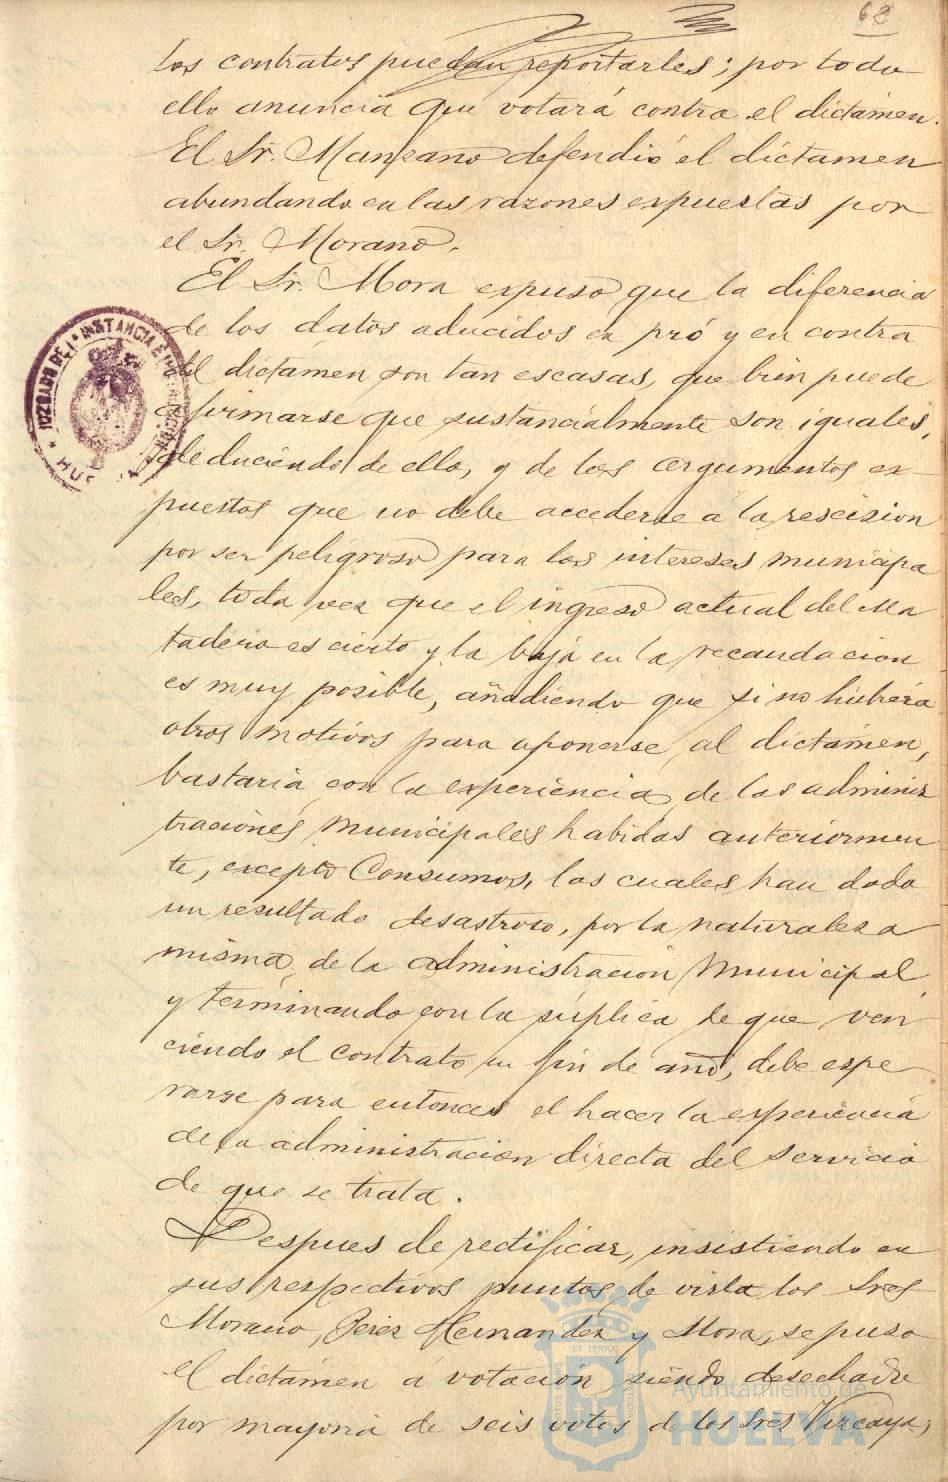 62
los contratos puedan reportarles; por todo
ello anuncia que votará contra el dictámen.
El Sr. Manzano defendió el dictamen
abundando en las razones espuestas por
el Sr. Morano.
El Sr. Mora espuso que la diferencia
de los datos aducidos en pró y en contra
del dictámen son tan escasas, que bien puede
afirmarse que sustancialmente son iguales,
deduciendo de ello, y de los argumentos es-
puestos que no debe accederse á la rescision
por ser peligroso para los intereses municipa
les, toda vez que el ingreso actual del Ma
tadero es cierto y la baja en la recaudacion
es muy posible, añadiendo que si no hubiera
otros motivos para oponerse al dictámen,
bastaria con la esperiencia de las adminis
traciones municipales habidas anteriormen
te, excepto Consumos, las cuales han dado
un resultado desastroso, por la naturaleza
misma de la administracion Municipal
y terminando con la súplica de que ven
ciendo el contrato en fin de año, debe espe
rarse para entonces el hacer la esperiencia
de la administracion directa del servicio
de que se trata.
Despues de rectificar, insistiendo en
sus respectivos puntos de vista los Sres
Morano, Perez Hernandez y Mora, se puso
el dictámen á votación siendo desechado
por mayoria de seis votos de los Sres Vizcaya,
JUZGADO DE 1ª INSTANCIA É INSTRUCCION
HUELVA
Ayuntamiento de
HUELVA